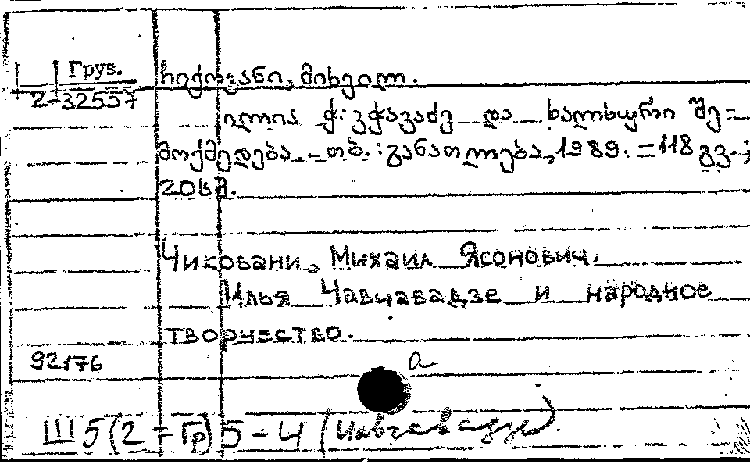 Груз.
2-32557
ჩიქოვანი, მიხეილ.
ილია ჭავჭავაძე და ხალხური შე-
მოქმედება. - თბ.: განათლება, 1989. - 118 გვ.;
20სმ.
Чиковани, Михаил Ясонович.
Илья Чавчавадзе и народное
творчество.
92176
а
Ш5(2=Гр)5-4 (Чавчавадзе)